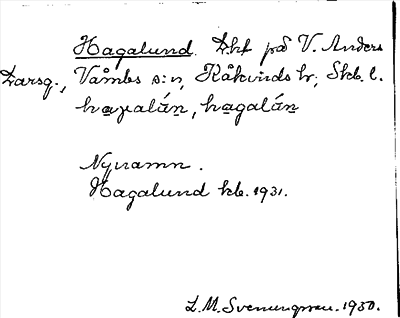 Hagalund. Lht på V. Anders
Larsg., Våmbs s:n, Kåkinds hr, Skb. l.
hagalán, hagalán
Nynamn.
Hagalund kb. 1931.
L. M. Svenungsson. 1930.